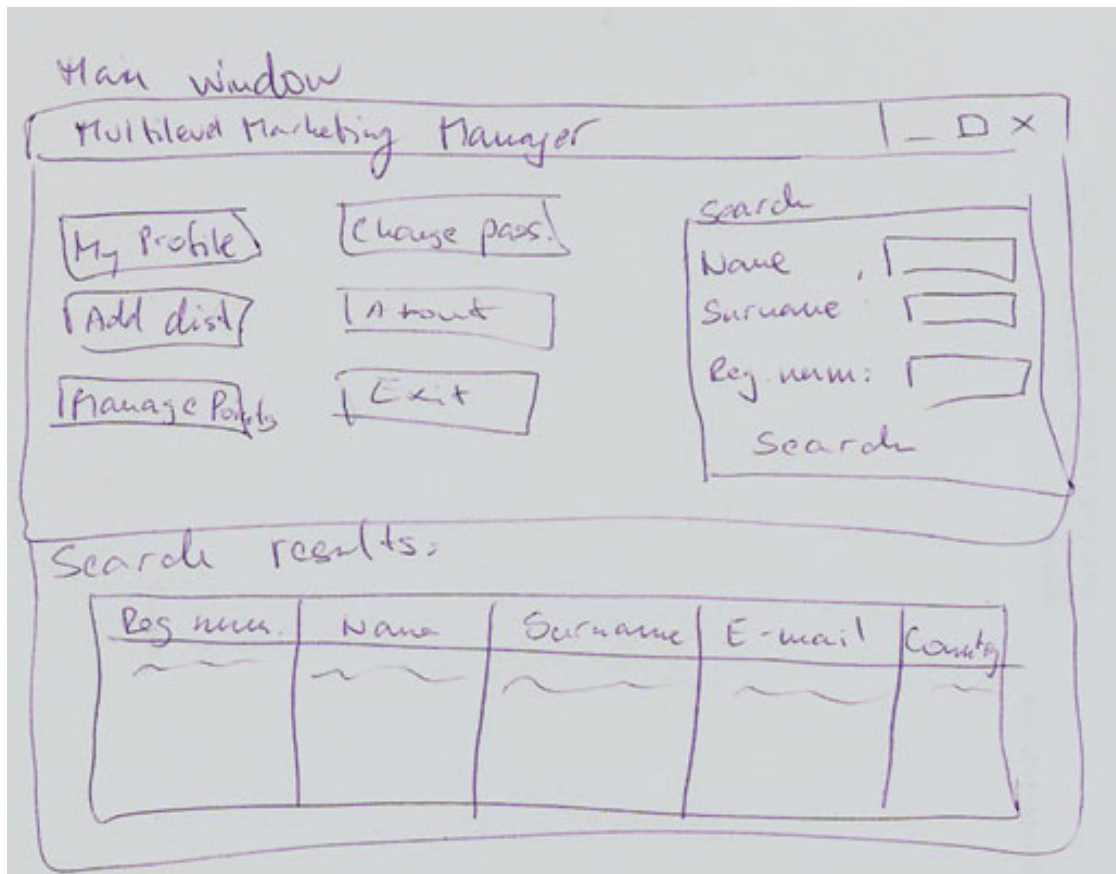 Main window
Multilevel Marketing Manager _ □ ×
My Profile
Change pass.
Add dist
About
Manage Points
Exit
Search
Name
Surname
Reg. num:
Search
Search results:
Reg num. Name Surname E-mail Country